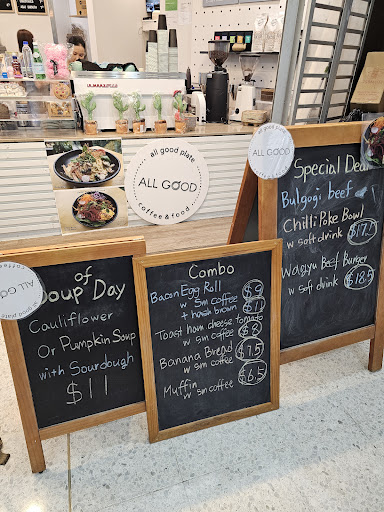 ALL GOOD
all good plate
ALL GOOD
coffee & food
ALL GOOD
ALL GO
of
Soup Day
Cauliflower
Or Pumpkin Soup
with Sourdough
$11
Combo
Bacon Egg Roll $9
w sm coffee
+ hash brown $11
Toast ham cheese tomato
w sm coffee $8
Banana Bread $7.5
w sm coffee
Muffin
w sm coffee $6.5
Special Deal
Bulgogi beef
Chilli Poke Bowl
w soft drink $17.
Wagyu Beef Burger
w soft drink $18.5